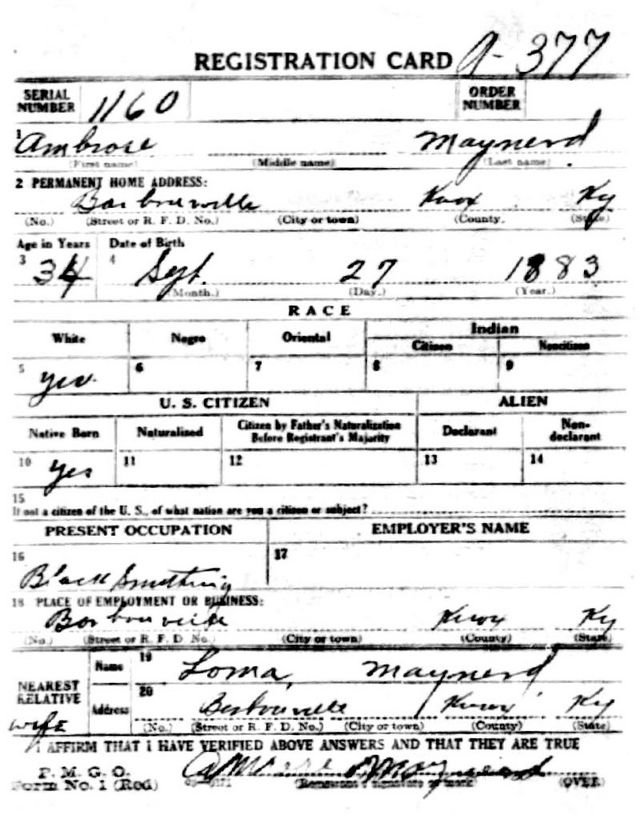 REGISTRATION CARD A-377
SERIAL NUMBER 1160 ORDER NUMBER
1 Ambrose Maynerd
(First name) (Middle name) (Last name)
2 PERMANENT HOME ADDRESS:
Barbourville Knox Ky
(No.) (Street or R. F. D. No.) (City or town) (County) (State)
Age in Years Date of Birth
3 34 4 Sept. 27 1883
(Month.) (Day.) (Year.)
RACE
White Negro Oriental Indian
Citizen Noncitizen
5 yes 6 7 8 9
U. S. CITIZEN ALIEN
Native Born Naturalized Citizen by Father's Naturalization Before Registrant's Majority Declarant Non-declarant
10 yes 11 12 13 14
15
If not a citizen of the U. S., of what nation are you a citizen or subject?
PRESENT OCCUPATION EMPLOYER'S NAME
16 17
Black Smithing
18 PLACE OF EMPLOYMENT OR BUSINESS:
Barbourville Knox Ky
(No.) (Street or R. F. D. No.) (City or town) (County) (State)
NEAREST RELATIVE Name 19 Loma, Maynerd
wife Address 20 Barbourville Knox Ky
(No.) (Street or R. F. D. No.) (City or town) (County) (State)
I AFFIRM THAT I HAVE VERIFIED ABOVE ANSWERS AND THAT THEY ARE TRUE
P. M. G. O.
Form No. 1 (Red) (Registrant's signature or mark) (OVER)